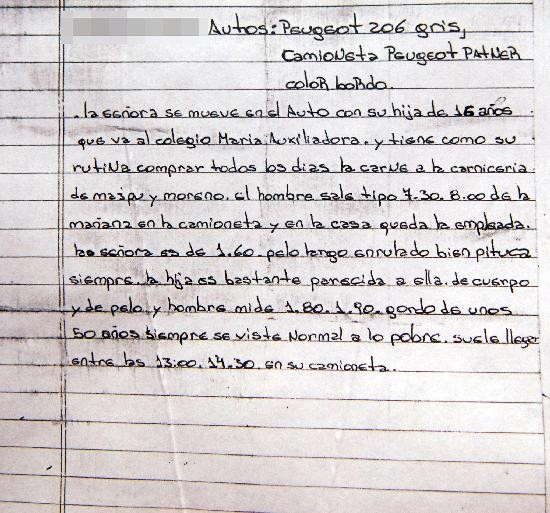 Autos: Peugeot 206 gris,
Camioneta Peugeot PATNER
color bordo.
. la señora se mueve en el Auto con su hija de 16 años
que va al colegio Maria Auxiliadora. y tiene como su
rutina comprar todos los dias la carne a la carniceria
de maipu y moreno. el hombre sale tipo 7.30. 8.00 de la
mañana en la camioneta y en la casa queda la empleada.
la señora es de 1.60. pelo largo enrulado bien pituca
siempre. la hija es bastante parecida a ella. de cuerpo
y de pelo. y hombre mide 1.80. 1.90. gordo de unos
50 años siempre se viste normal a lo pobre. suele llegar
entre las 13:00. 14.30 en su camioneta.